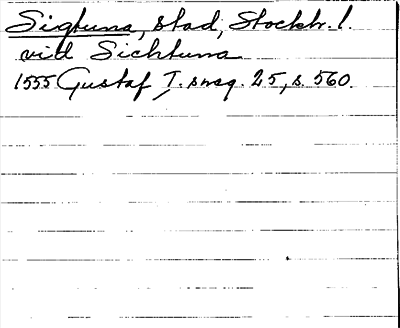 Sigtuna, stad, Stockh. l.
vid Sichtuna
1555 Gustaf I. s reg. 25, s. 560.